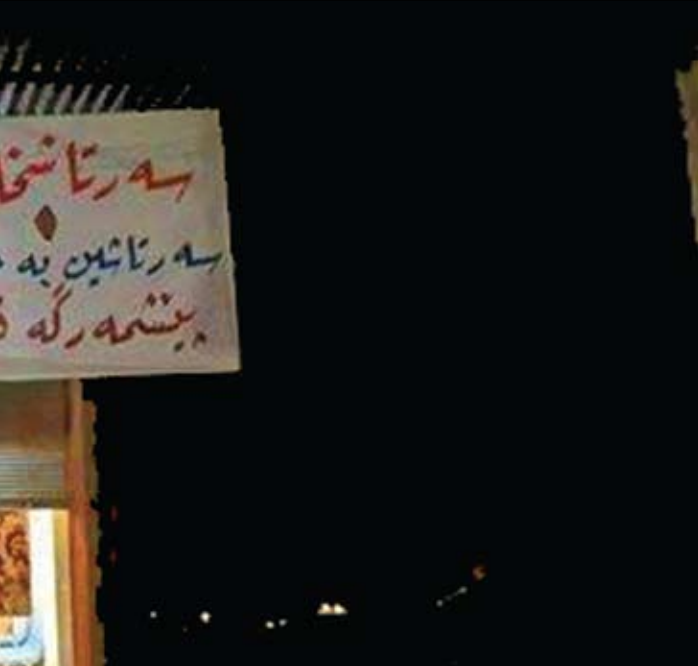 سەرتاشخا
سەرتاشین بە
پێشمەرگە